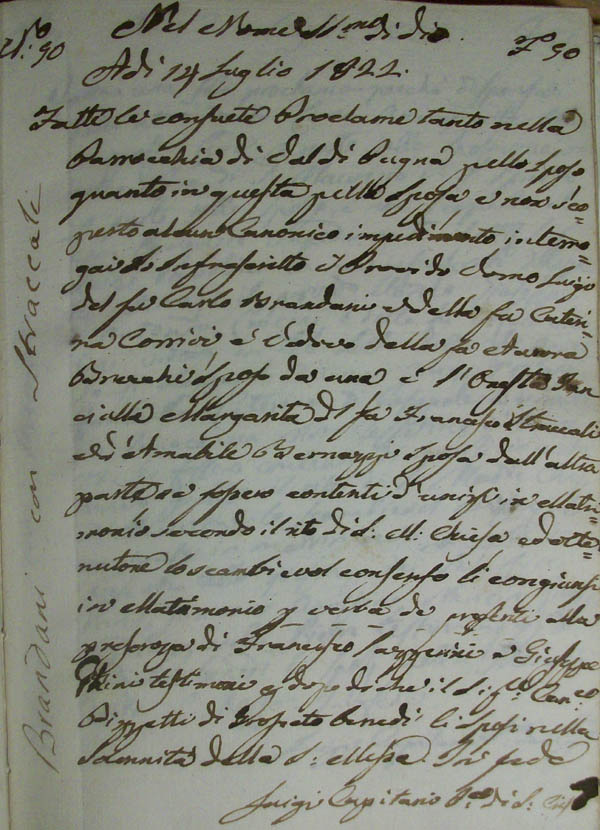 Nel Nome SS.mo di Dio.
N.o 90
F.o 90
A di 14 Luglio 1822.
Fatte le consuete Proclame tanto nella
Parrocchia di Cal di Pugna pello Sposo
quanto in questa pella Sposa e non sco=
perto alcun Canonico impedimento interro=
gai Io Infrascritto il Provido Uomo Luigi
del fu Carlo Brandani e della fu Cateri=
na Corrivi e Vedovo della fu Aurora
Brecchi Sposo da una e l'Onesta Fan
ciulla Margarita del fu Francesco Straccali
e di Amabile Bernazzi Sposa dall'altra
parte se fossero contenti d'unirsi in Matri=
monio secondo il rito di S: M: Chiesa ed otte=
nutone lo scambievol consenso li congiunsi
in Matrimonio p verba de presenti alla
presenza di Francesco e Giuseppe
testimoni dopo di che il Sig.re Can.co
Pizzetti di Grosseto benedì li Sposi nella
Solennità della S: Messa. In fede
Luigi Capitani di S:
Brandani con Straccali